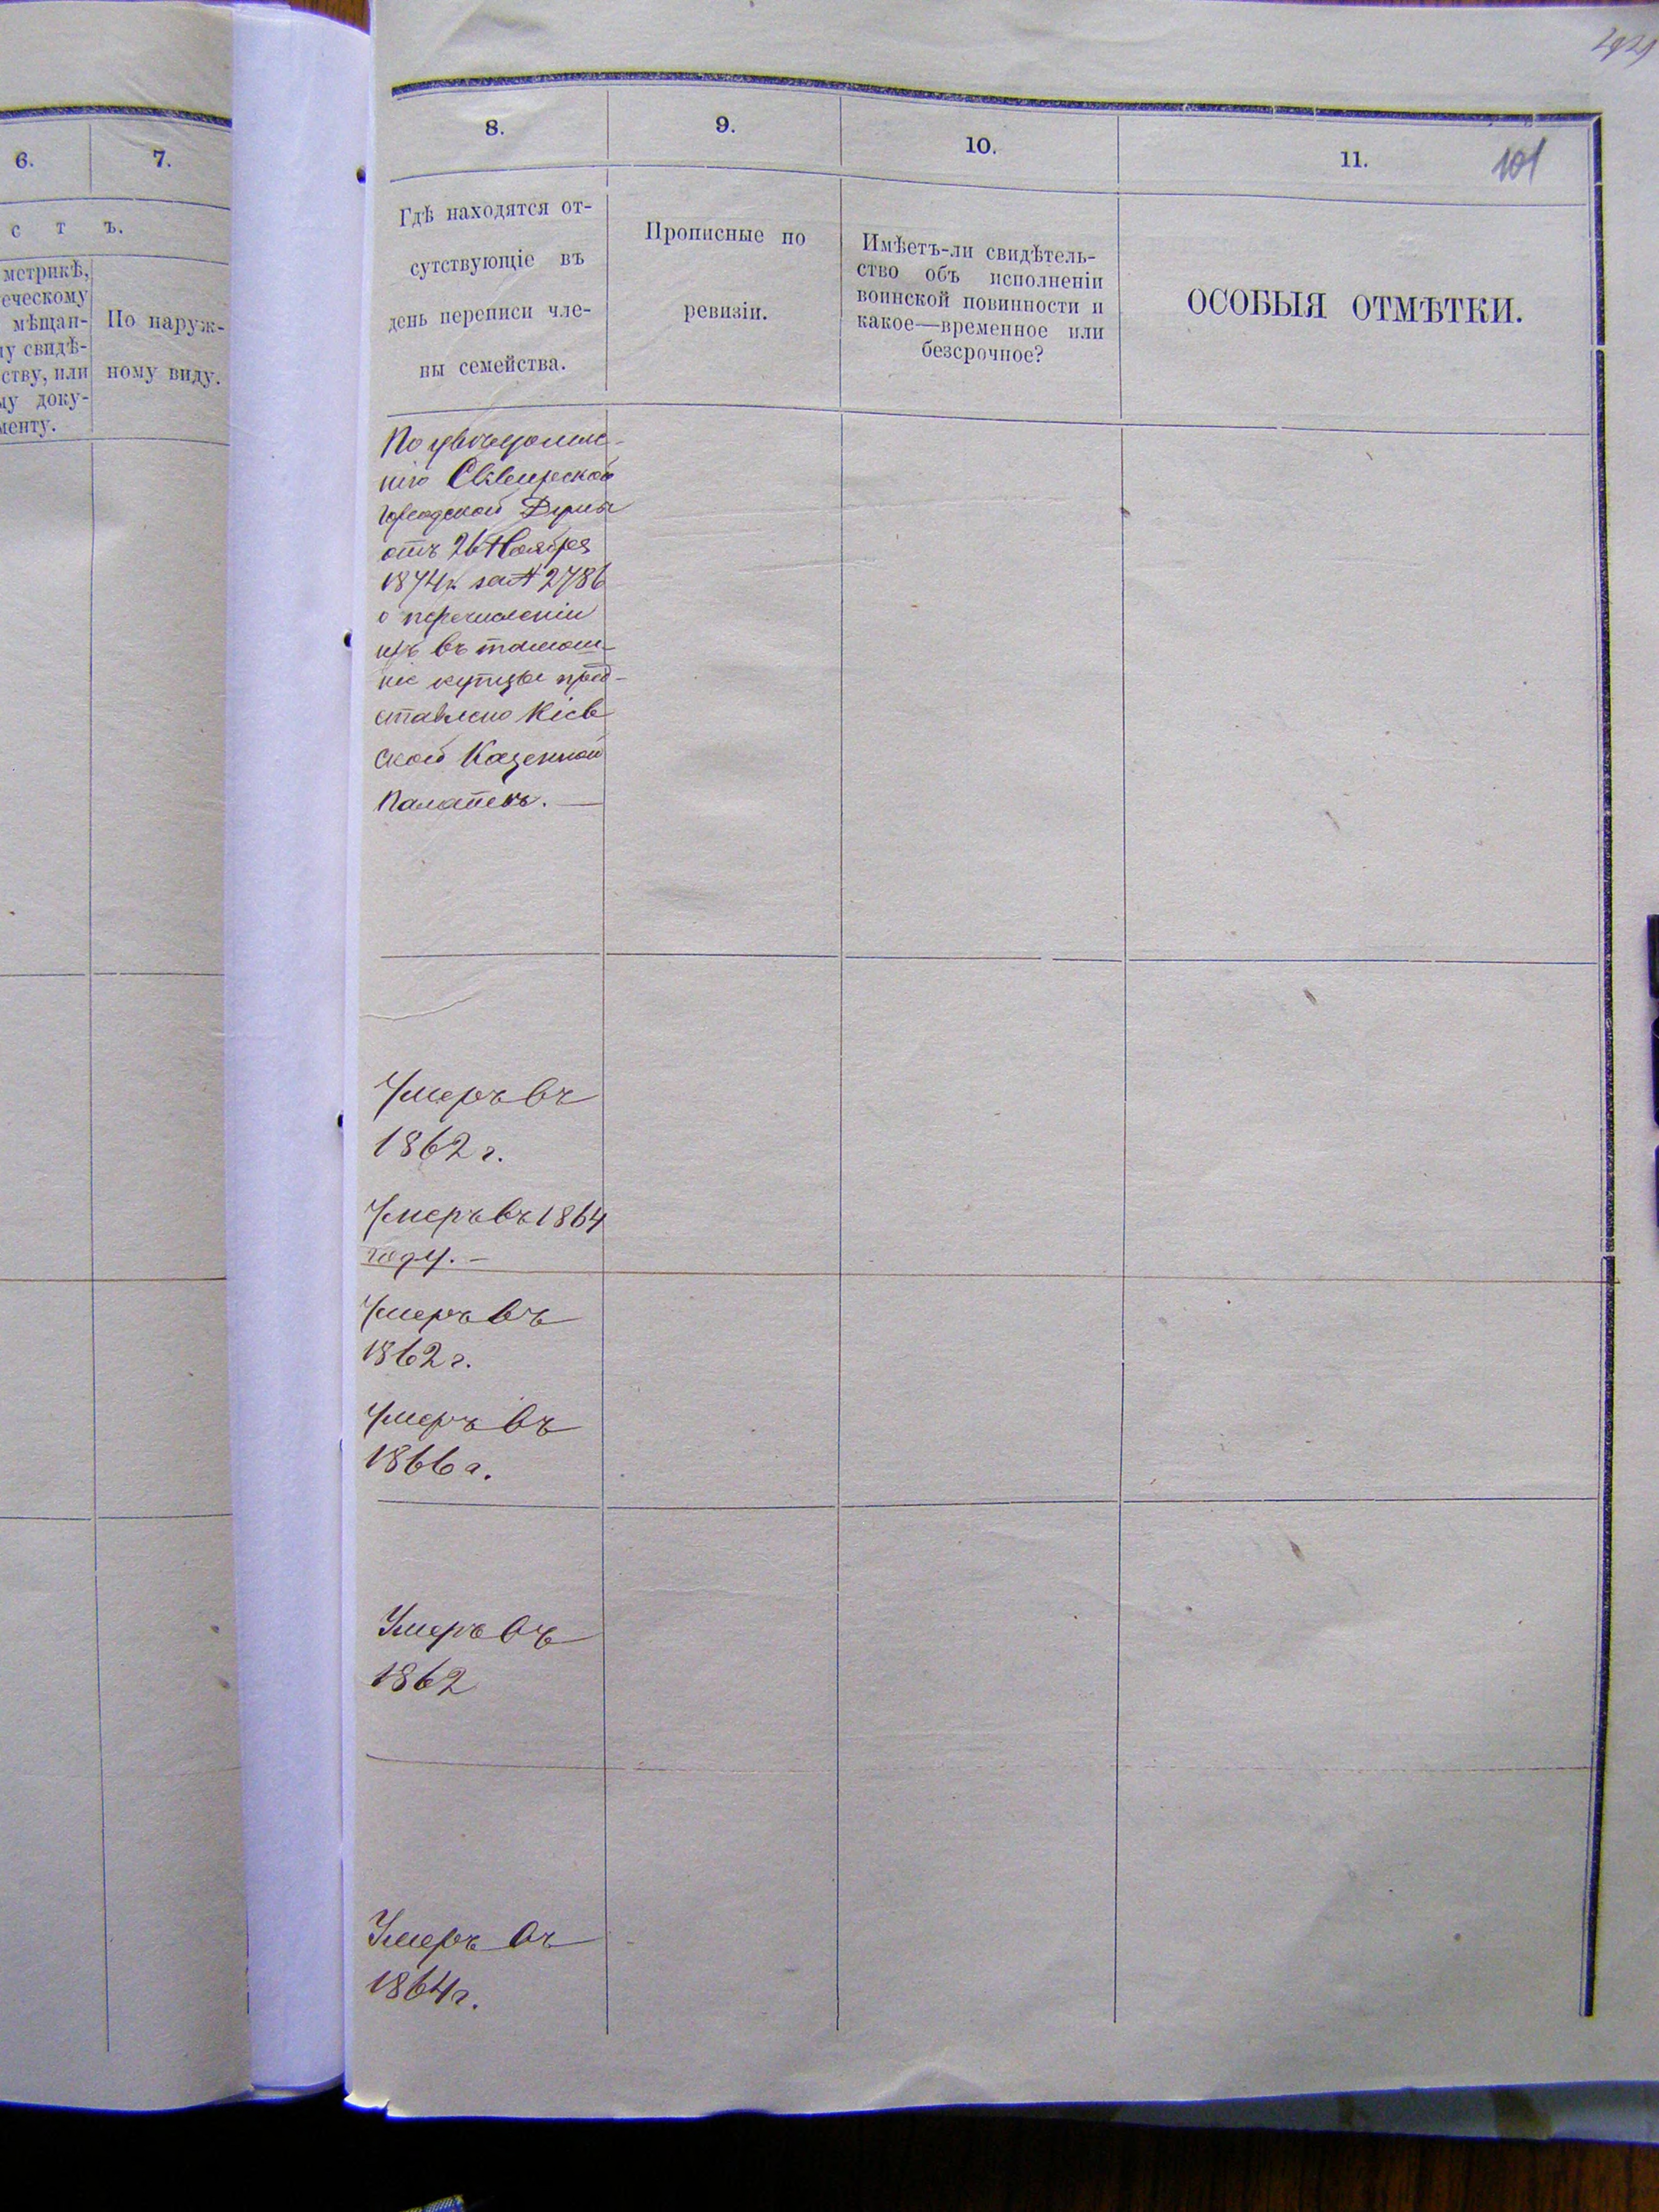 6.
7.
с т ъ.
метрикѣ,
еческому
мѣщан-
у свидѣ-
ству, или
у доку-
менту.
По наруж-
ному виду.
8.
9.
10.
11.
101
Гдѣ находятся от-
сутствующіе въ
день переписи чле-
ны семейства.
Прописные по
ревизіи.
Имѣетъ-ли свидѣтель-
ство объ исполненіи
воинской повинности и
какое—временное или
безсрочное?
ОСОБЫЯ ОТМѢТКИ.
По увѣдомле-
нію Сквирской
городской Думы
отъ 26 Ноября
1874 г. за № 2786
о перечисленіи
ихъ въ тамош-
ніе купцы пред-
ставлено Кіев
ской Казенной
Палатѣ. —
Умеръ въ
1862 г.
Умеръ въ 1864
году. —
Умеръ въ
1862 г.
Умеръ въ
1866 г.
Умеръ въ
1862
Умеръ въ
1864 г.